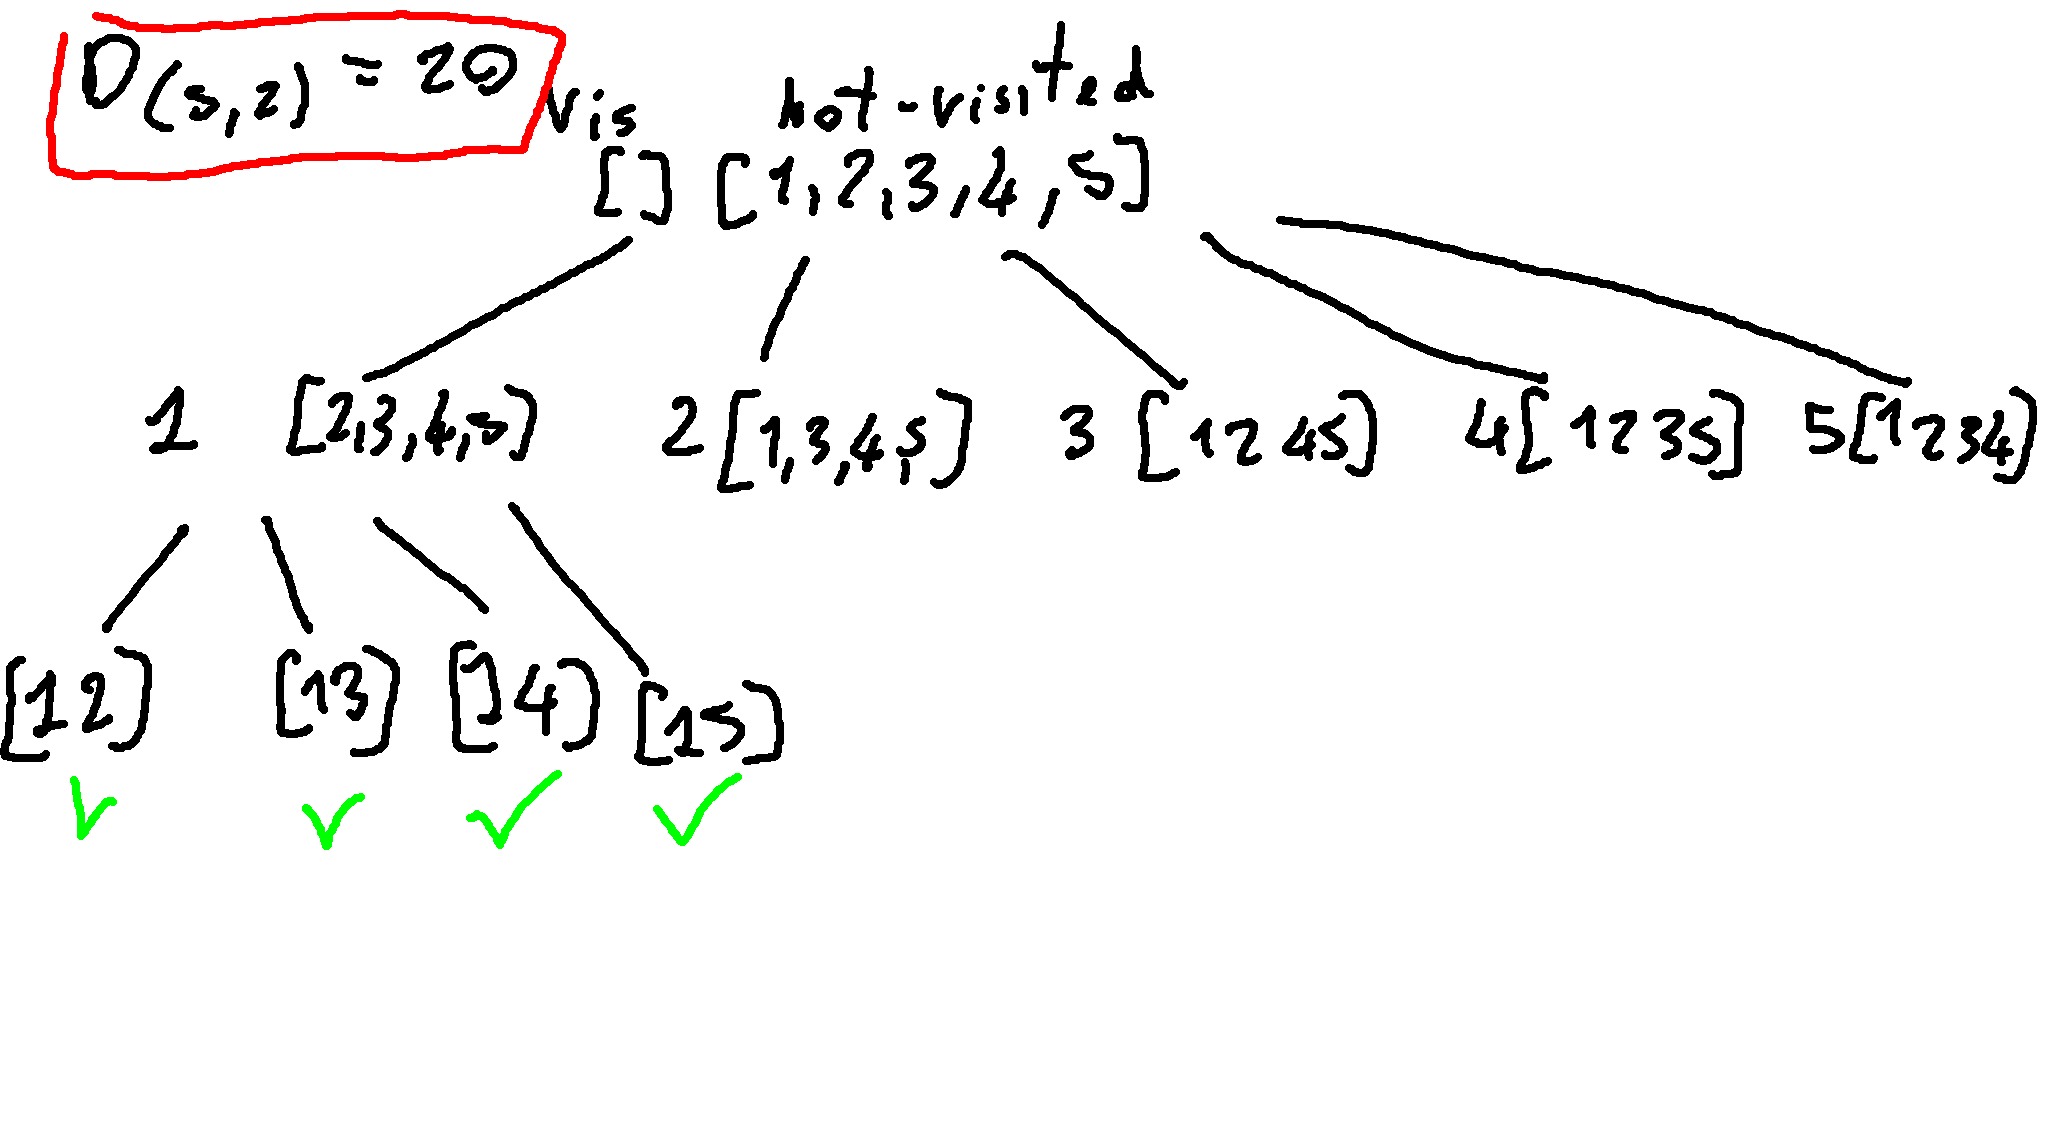 D(5,2) = 20
vis not-visited
[] [1,2,3,4,5]
1 [2,3,4,5] 2[1,3,4,5] 3 [1245] 4[1235] 5[1234]
[12] [13] [14] [15]